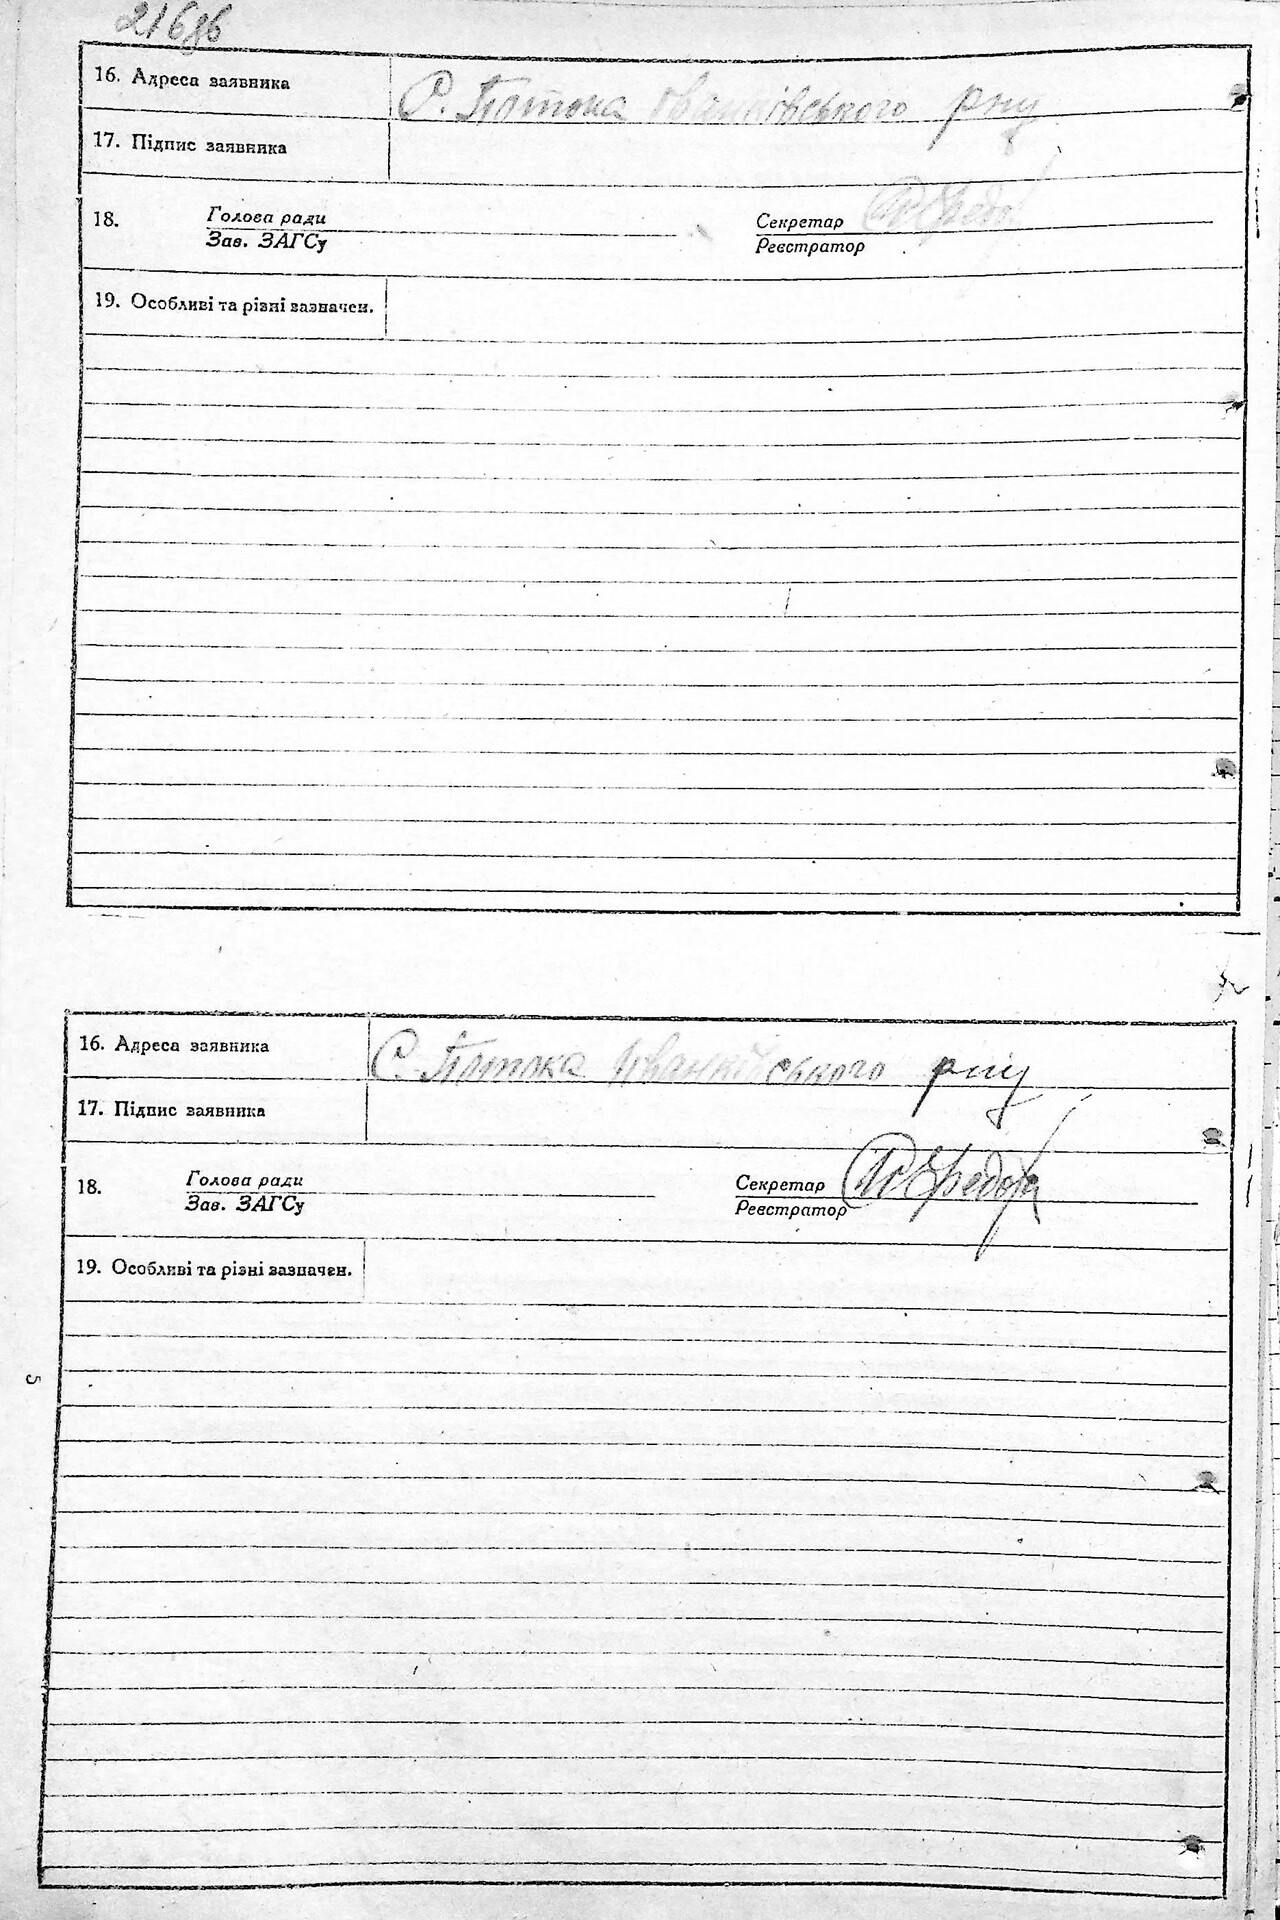 216
16. Адреса заявника С. Потока Іванківського р-ну
17. Підпис заявника
18. Голова ради Секретар
Зав. ЗАГСу Реєстратор
19. Особливі та різні зазначен.
16. Адреса заявника С. Потока Іванківського р-ну
17. Підпис заявника
18. Голова ради Секретар
Зав. ЗАГСу Реєстратор
19. Особливі та різні зазначен.
5